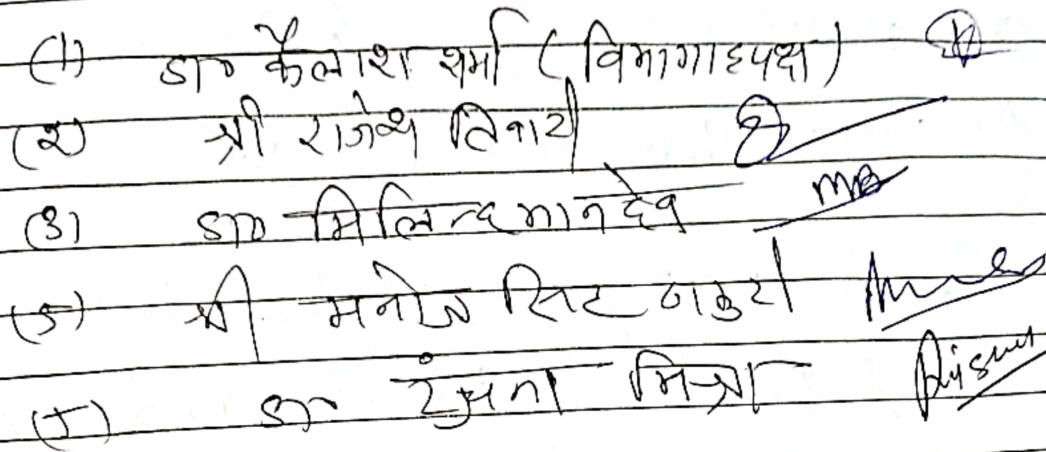 (1) डा० कैलाश शर्मा (विभागाध्यक्ष)
(2) श्री राजेश तिवारी
(3) डा० मिलिन्द भानदेव MB
(4) श्री मनोज सिंह ठाकुर
(5) डा० रंजना मिश्रा